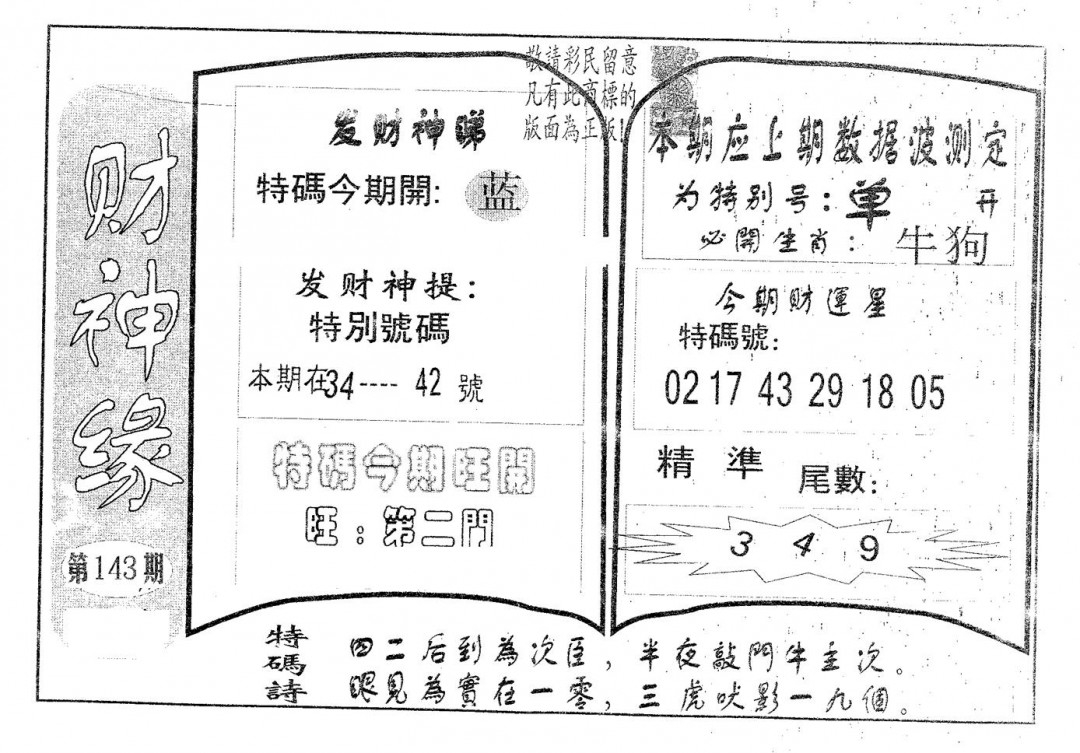 财神缘
第143期
敬請彩民留意
凡有此商標的
版面為正版!
发财神睇
特碼今期開: 蓝
发财神提:
特別號碼
本期在34---- 42 號
特碼今期旺開
旺: 第二門
本期应上期数据波测定
为特别号: 单 开
必開生肖: 牛狗
今期財運星
特碼號:
02 17 43 29 18 05
精準 尾數:
3 4 9
特碼詩
四二后到為次臣, 半夜敲門牛主次。
眼見為實在一零, 三虎吠影一九個。